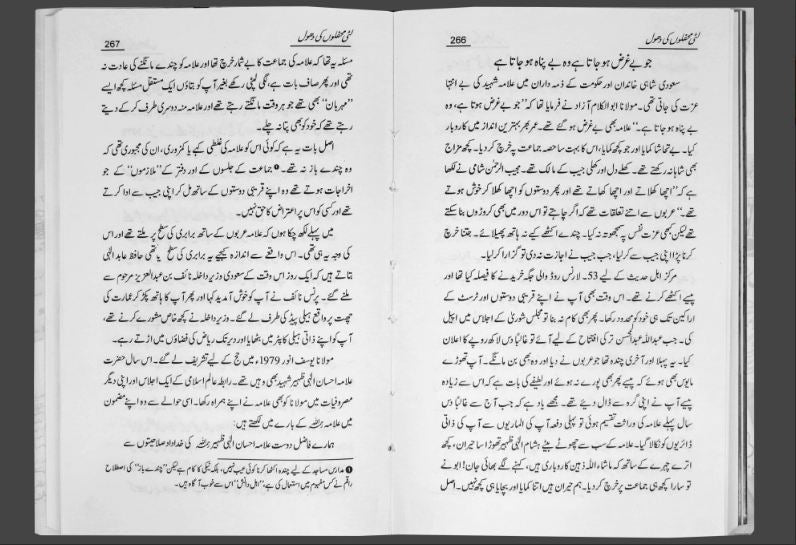 لٹی محفلوں کی دھول
266
جو بے غرض ہو جاتا ہے وہ بے پناہ ہو جاتا ہے
سعودی شاہی خاندان اور حکومت کے ذمہ داران میں علامہ شہید کی بے انتہا
عزت کی جاتی تھی۔ مولانا ابوالکلام آزاد نے فرمایا تھا کہ ’’جو بے غرض ہوتا ہے، وہ
بے پناہ ہو جاتا ہے۔‘‘ علامہ بھی بے غرض ہو گئے تھے۔ عمر بھر بہترین انداز میں کاروبار
کیا۔ بے تحاشا کمایا اور جو کچھ کمایا، اس کا بہت سا حصہ جماعت پہ خرچ کر دیا۔ کچھ مزاج
بھی شاہانہ رکھتے تھے۔ کھلے دل اور کھلی جیب کے مالک تھے۔ مجیب الرحمٰن شامی نے لکھا
ہے کہ ’’اچھا کھلاتے اور اچھا کھاتے تھے اور پھر دوستوں کو اچھا کھلا کر خوش ہوتے
تھے۔‘‘ عربوں سے اتنے تعلقات تھے کہ اگر چاہتے تو اس دور میں بھی کروڑوں بنا سکتے
تھے لیکن کبھی عزت نفس پہ سمجھوتہ نہ کیا۔ چندے اکٹھے کیے نہ ہاتھ پھیلائے۔ جتنا خرچ
کرنا پڑا اپنی جیب سے کر لیا، جب جیب نے اجازت نہ دی تو گزارا کر لیا۔
مرکز اہل حدیث کے لیے 53۔ لارنس روڈ والی جگہ خریدنے کا فیصلہ کیا تھا اور
پیسے اکٹھے کرنے تھے۔ اس وقت بھی آپ نے اپنے قریبی دوستوں اور ٹرسٹ کے
اراکین تک ہی خود کو محدود رکھا۔ پھر بھی کام نہ بنا تو مجلس شوریٰ کے اجلاس میں اپیل
کی۔ جب عبداللہ عبدالمحسن ترکی افتتاح کے لیے آئے تو غالباً دس لاکھ روپے کا اعلان
کیا۔ یہ پہلا اور آخری چندہ تھا جو عربوں نے دیا اور وہ بھی بن مانگے۔ آپ تھوڑے
مایوس بھی ہوئے کہ پیسے پھر بھی پورے نہ ہوئے اور لطیفے کی بات ہے کہ اس سے زیادہ
پیسے آپ نے اپنی گرہ سے ڈال دیئے تھے۔ مجھے یاد ہے کہ جب آج سے غالباً دس
سال پہلے علامہ کی وراثت تقسیم ہوئی تو پہلی دفعہ آپ کی الماریوں سے آپ کی ذاتی
ڈائریوں کو نکالا گیا۔ علامہ کے سب سے چھوٹے بیٹے ہشام الٰہی ظہیر تھوڑا سا حیران، کچھ
اترے چہرے کے ساتھ کہ ماشاء اللہ ذہین کاروباری ہیں، کہنے لگے بھائی جان! ابو نے
تو سارا کچھ ہی جماعت پر خرچ کر دیا۔ ہم حیران ہیں اتنا کمایا اور بچایا ہی کچھ نہیں۔ اصل
لٹی محفلوں کی دھول
267
مسئلہ یہ تھا کہ علامہ کی جماعت کا بے شمار خرچ تھا اور علامہ کو چندے مانگنے کی عادت نہ
تھی اور پھر صاف بات ہے، لگی لپٹی رکھے بغیر آپ کو بتاؤں ایک مستقل مسئلہ کچھ ایسے
’’مہربان‘‘ بھی تھے جو ہر وقت مانگتے رہتے تھے اور علامہ منہ دوسری طرف کر کے دیتے
رہتے تھے کہ خود کو بھی پتا نہ چلے۔
اصل بات یہ ہے کہ کوئی اس کو علامہ کی غلطی کہے یا کمزوری، ان کی مجبوری تھی کہ
وہ چندے باز نہ تھے۔❶ جماعت کے جلسوں کے اور دفتر کے ’’ملازموں‘‘ کے جو
اخراجات ہوتے تھے وہ اپنے قریبی دوستوں کے ساتھ مل کر اپنی جیب سے ادا کرتے
تھے اور کسی کو اس پر اعتراض کا حق نہیں۔
میں پہلے لکھ چکا ہوں کہ علامہ عربوں کے ساتھ برابری کی سطح پر ملتے تھے اور اس
کی وجہ یہ ہی تھی۔ اس واقعے سے اندازہ کیجیے یہ برابری کی سطح کیا تھی حافظ عابد الٰہی
بتاتے ہیں کہ ایک روز اس وقت کے سعودی وزیر داخلہ نائف بن عبدالعزیز مرحوم سے
ملنے گئے۔ پرنس نائف نے آپ کو خوش آمدید کہا اور پھر آپ کا ہاتھ پکڑ کر عمارت کی
چھت پر واقع ہیلی پیڈ کی طرف لے گئے۔ وزیر داخلہ نے کچھ خاص مشورے کرنے تھے،
آپ کو اپنے ذاتی ہیلی کاپٹر میں بٹھایا اور دیر تک ریاض کی فضاؤں میں اڑاتے رہے۔
مولانا یوسف انور 1979ء میں حج کے لیے تشریف لے گئے۔ اس سال حضرت
علامہ احسان الٰہی ظہیر شہید بھی وہ ہیں تھے۔ رابطہ عالم اسلامی کے ایک اجلاس اور اپنی دیگر
مصروفیات میں مولانا کو بھی علامہ نے اپنے ہمراہ رکھا۔ اسی حوالے سے وہ اپنے مضمون
میں علامہ رحمہ اللہ کے بارے میں لکھتے ہیں:
ہمارے فاضل دوست علامہ احسان الٰہی ظہیر رحمہ اللہ کی خداداد صلاحیتوں سے
❶ مدارس مساجد کے لیے چندہ اکٹھا کرنا کوئی عیب نہیں، بلکہ نیکی کا کام ہے لیکن ’’چندے باز‘‘ کی اصطلاح
راقم نے کس مفہوم میں استعمال کی ہے؛ ’’اہل دانش‘‘ اس سے خوب آگاہ ہیں۔